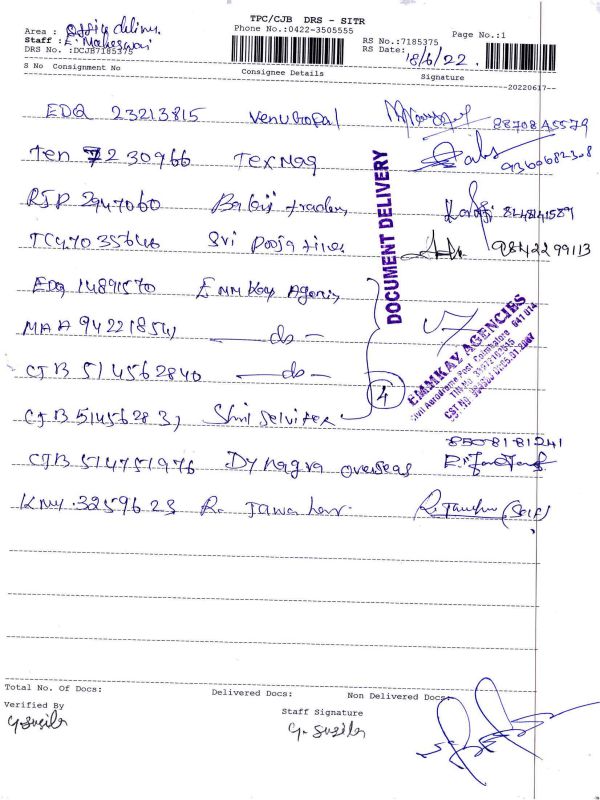 TPC/CJB DRS - SITR
Area : Office delivery.
Phone No.:0422-3505555
Page No.:1
Staff : E. Maheswari
RS No.:7185375
DRS No. :DCJB7185375
RS Date: 18/6/22.
S No Consignment No Consignee Details Signature
--20220617--
EDQ 23213815 Venugopal 88708 A5579
Ten 7230966 Texmaq 9360682308
RJP 2947060 Balaji traders 8148141589
TCY 7035646 Sri Pooja tines 98422 99113
EDQ 14891570 EMM Kay Agencies
MAA 94221854 — do —
CJB 514562840 — do —
4
CJB 51456283 Shri Selvi tex
DOCUMENT DELIVERY
EMMKAY AGENCIES
Civil Aerodrome Post, Coimbatore - 641 014
8508181241
CJB 514751976 Dynagra overseas
KNY 3259623 R. Jawahar (Self)
Total No. Of Docs: Delivered Docs: Non Delivered Docs:
Verified By Staff Signature
G. Susila G. Susila